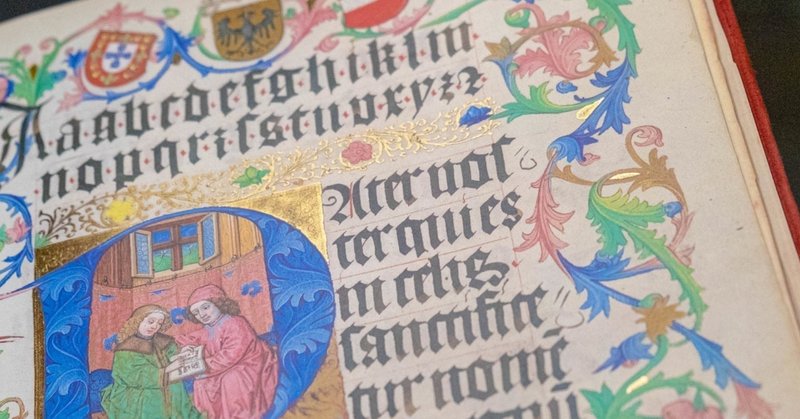 A a a b c d e f g h i k l m
n o p q r ꝛ ſ s t u v x y z ⁊
PAter noſ
ter qui es
in celis
ſanctifice
tur nomē